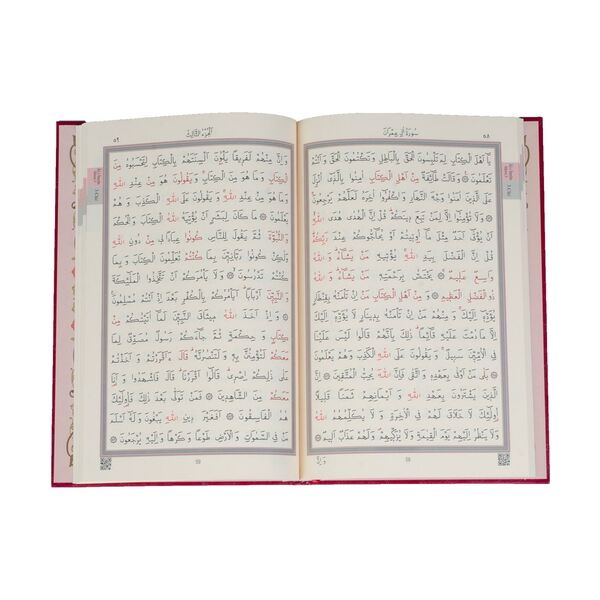 ٥٨
سُورَةُ اٰلِ عِمْرٰنَ
يَا اَهْلَ الْكِتَابِ لِمَ تَلْبِسُونَ الْحَقَّ بِالْبَاطِلِ وَتَكْتُمُونَ الْحَقَّ وَاَنْتُمْ
تَعْلَمُونَ وَقَالَتْ طَائِفَةٌ مِنْ اَهْلِ الْكِتَابِ اٰمِنُوا بِالَّذِي اُنْزِلَ
عَلَى الَّذِينَ اٰمَنُوا وَجْهَ النَّهَارِ وَاكْفُرُوا اٰخِرَهُ لَعَلَّهُمْ يَرْجِعُونَ
وَلَا تُؤْمِنُوا اِلَّا لِمَنْ تَبِعَ دِينَكُمْ قُلْ اِنَّ الْهُدٰى هُدَى اللّٰهِ
اَنْ يُؤْتٰى اَحَدٌ مِثْلَ مَا اُوتِيتُمْ اَوْ يُحَاجُّوكُمْ عِنْدَ رَبِّكُمْ
قُلْ اِنَّ الْفَضْلَ بِيَدِ اللّٰهِ يُؤْتِيهِ مَنْ يَشَاءُ وَاللّٰهُ
وَاسِعٌ عَلِيمٌ يَخْتَصُّ بِرَحْمَتِهِ مَنْ يَشَاءُ وَاللّٰهُ
ذُو الْفَضْلِ الْعَظِيمِ وَمِنْ اَهْلِ الْكِتَابِ مَنْ اِنْ تَأْمَنْهُ بِقِنْطَارٍ
يُؤَدِّهِ اِلَيْكَ وَمِنْهُمْ مَنْ اِنْ تَأْمَنْهُ بِدِينَارٍ لَا يُؤَدِّهِ اِلَيْكَ
اِلَّا مَا دُمْتَ عَلَيْهِ قَائِمًا ذٰلِكَ بِاَنَّهُمْ قَالُوا لَيْسَ عَلَيْنَا
فِي الْاُمِّيِّنَ سَبِيلٌ وَيَقُولُونَ عَلَى اللّٰهِ الْكَذِبَ وَهُمْ يَعْلَمُونَ
بَلٰى مَنْ اَوْفٰى بِعَهْدِهِ وَاتَّقٰى فَاِنَّ اللّٰهَ يُحِبُّ الْمُتَّقِينَ اِنَّ
الَّذِينَ يَشْتَرُونَ بِعَهْدِ اللّٰهِ وَاَيْمَانِهِمْ ثَمَنًا قَلِيلًا
اُولٰئِكَ لَا خَلَاقَ لَهُمْ فِي الْاٰخِرَةِ وَلَا يُكَلِّمُهُمُ اللّٰهُ
وَلَا يَنْظُرُ اِلَيْهِمْ يَوْمَ الْقِيٰمَةِ وَلَا يُزَكِّيهِمْ وَلَهُمْ عَذَابٌ اَلِيمٌ
وَاِنَّ
الْجُزْءُ الثَّالِثُ
٥٩
وَاِنَّ مِنْهُمْ لَفَرِيقًا يَلْوُنَ اَلْسِنَتَهُمْ بِالْكِتَابِ لِتَحْسَبُوهُ مِنَ
الْكِتَابِ وَمَا هُوَ مِنَ الْكِتَابِ وَيَقُولُونَ هُوَ مِنْ عِنْدِ اللّٰهِ
وَمَا هُوَ مِنْ عِنْدِ اللّٰهِ وَيَقُولُونَ عَلَى اللّٰهِ الْكَذِبَ وَهُمْ
يَعْلَمُونَ مَا كَانَ لِبَشَرٍ اَنْ يُؤْتِيَهُ اللّٰهُ الْكِتَابَ وَالْحُكْمَ
وَالنُّبُوَّةَ ثُمَّ يَقُولَ لِلنَّاسِ كُونُوا عِبَادًا لِي مِنْ دُونِ اللّٰهِ
وَلٰكِنْ كُونُوا رَبَّانِيِّنَ بِمَا كُنْتُمْ تُعَلِّمُونَ الْكِتَابَ وَبِمَا
كُنْتُمْ تَدْرُسُونَ وَلَا يَأْمُرَكُمْ اَنْ تَتَّخِذُوا الْمَلٰئِكَةَ
وَالنَّبِيِّنَ اَرْبَابًا اَيَأْمُرُكُمْ بِالْكُفْرِ بَعْدَ اِذْ اَنْتُمْ مُسْلِمُونَ
وَاِذْ اَخَذَ اللّٰهُ مِيثَاقَ النَّبِيِّنَ لَمَا اٰتَيْتُكُمْ مِنْ
كِتَابٍ وَحِكْمَةٍ ثُمَّ جَاءَكُمْ رَسُولٌ مُصَدِّقٌ لِمَا
مَعَكُمْ لَتُؤْمِنُنَّ بِهِ وَلَتَنْصُرُنَّهُ قَالَ ءَاَقْرَرْتُمْ وَاَخَذْتُمْ
عَلٰى ذٰلِكُمْ اِصْرِي قَالُوا اَقْرَرْنَا قَالَ فَاشْهَدُوا وَاَنَا
مَعَكُمْ مِنَ الشَّاهِدِينَ فَمَنْ تَوَلّٰى بَعْدَ ذٰلِكَ فَاُولٰئِكَ
هُمُ الْفَاسِقُونَ اَفَغَيْرَ دِينِ اللّٰهِ يَبْغُونَ وَلَهُ اَسْلَمَ
مَنْ فِي السَّمٰوَاتِ وَالْاَرْضِ طَوْعًا وَكَرْهًا وَاِلَيْهِ يُرْجَعُونَ